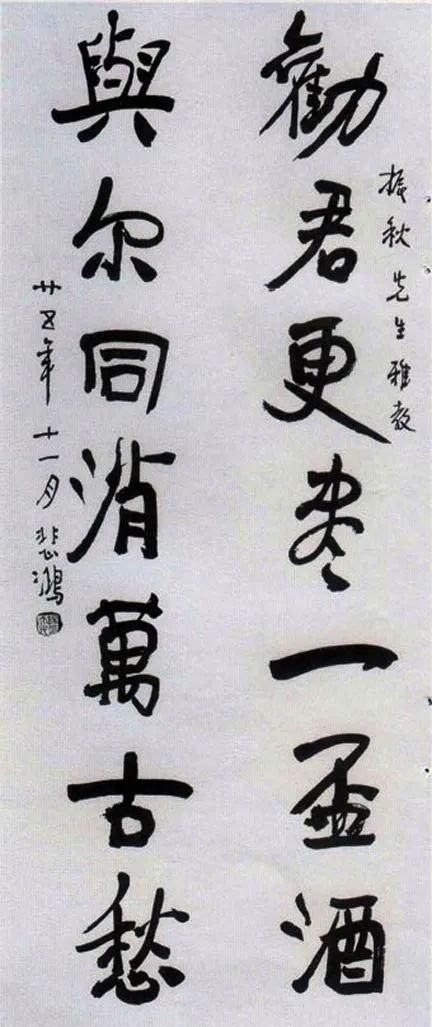 振秋先生雅教
勸君更盡一盃酒
與尔同消萬古愁
廿五年十一月悲鴻